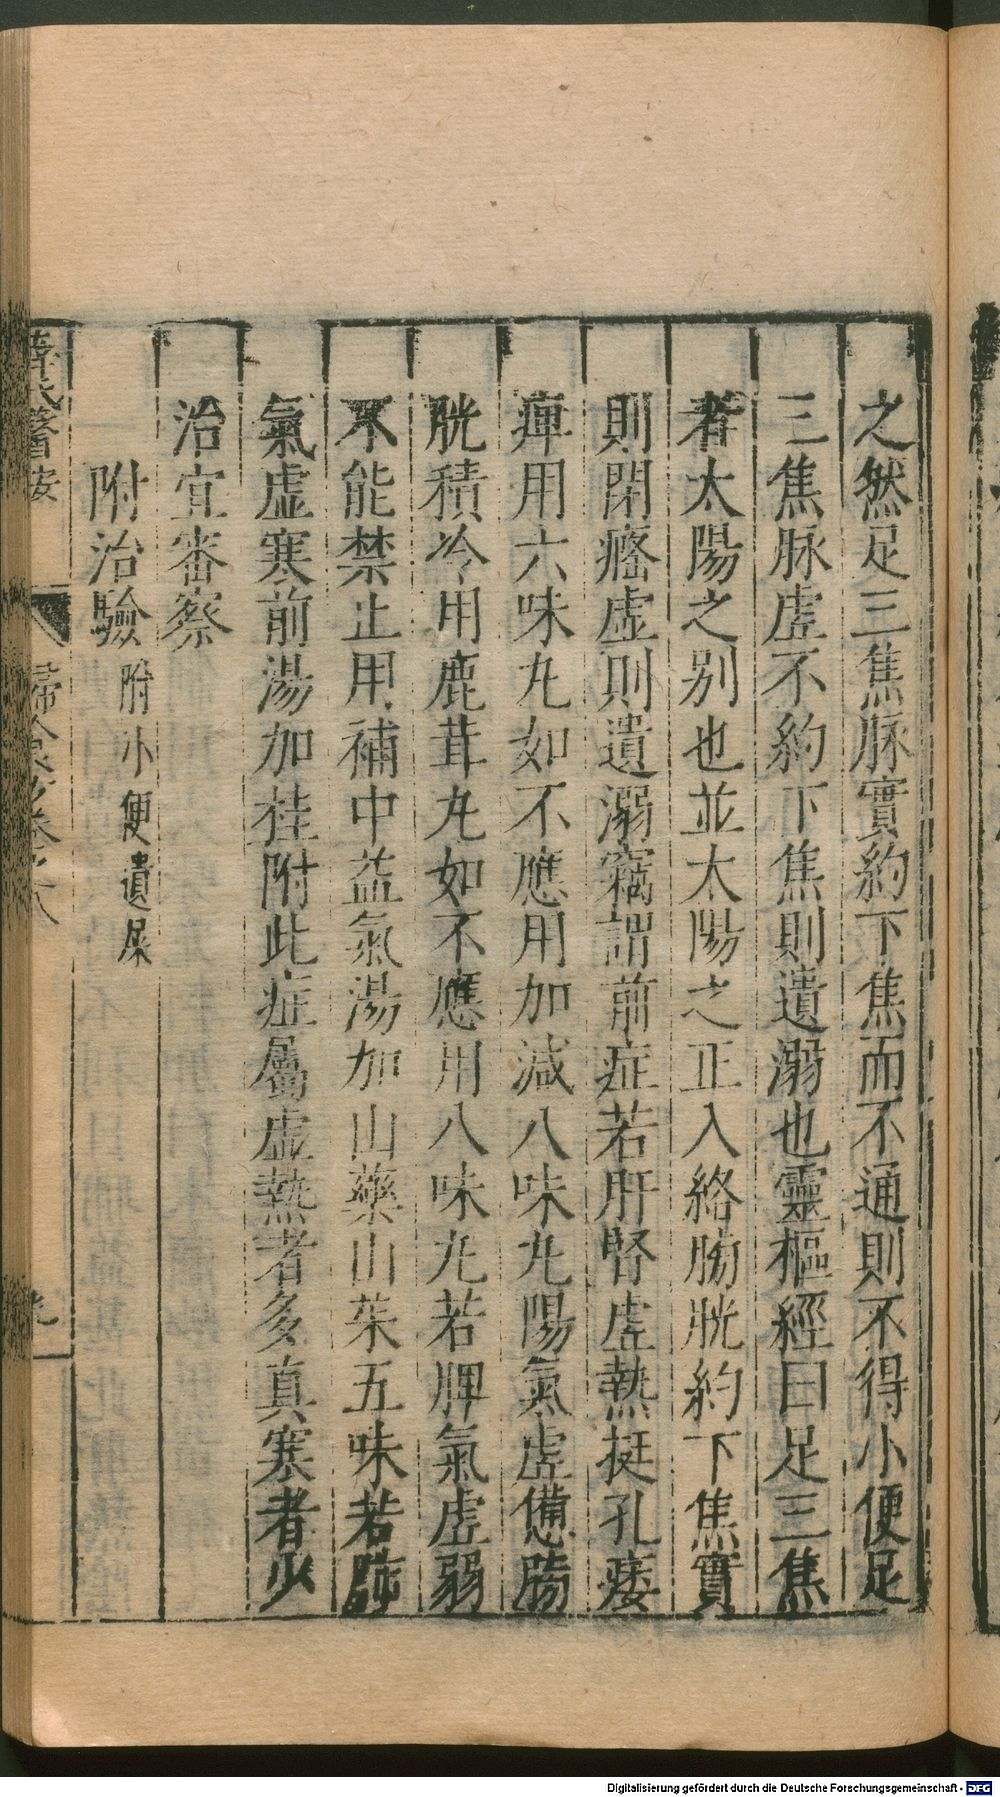 之然足三焦脉實約下焦而不通則不得小便足
三焦脉虛不約下焦則遺溺也靈樞經曰足三焦
者太陽之别也並太陽之正入絡膀胱約下焦實
則閉癃虛則遺溺竊謂前症若肝腎虛熱挺孔痿
痺用六味丸如不應用加減八味丸陽氣虛憊膀
胱積冷用鹿茸丸如不應用八味丸若脾氣虛弱
不能禁止用補中益氣湯加山藥山茱五味若肺
氣虛寒前湯加桂附此症屬虛熱者多真寒者少
治宜審察
附治驗附小便遺屎
薛氏醫按
婦人良方卷之八
Digitalisierung gefördert durch die Deutsche Forschungsgemeinschaft - DFG